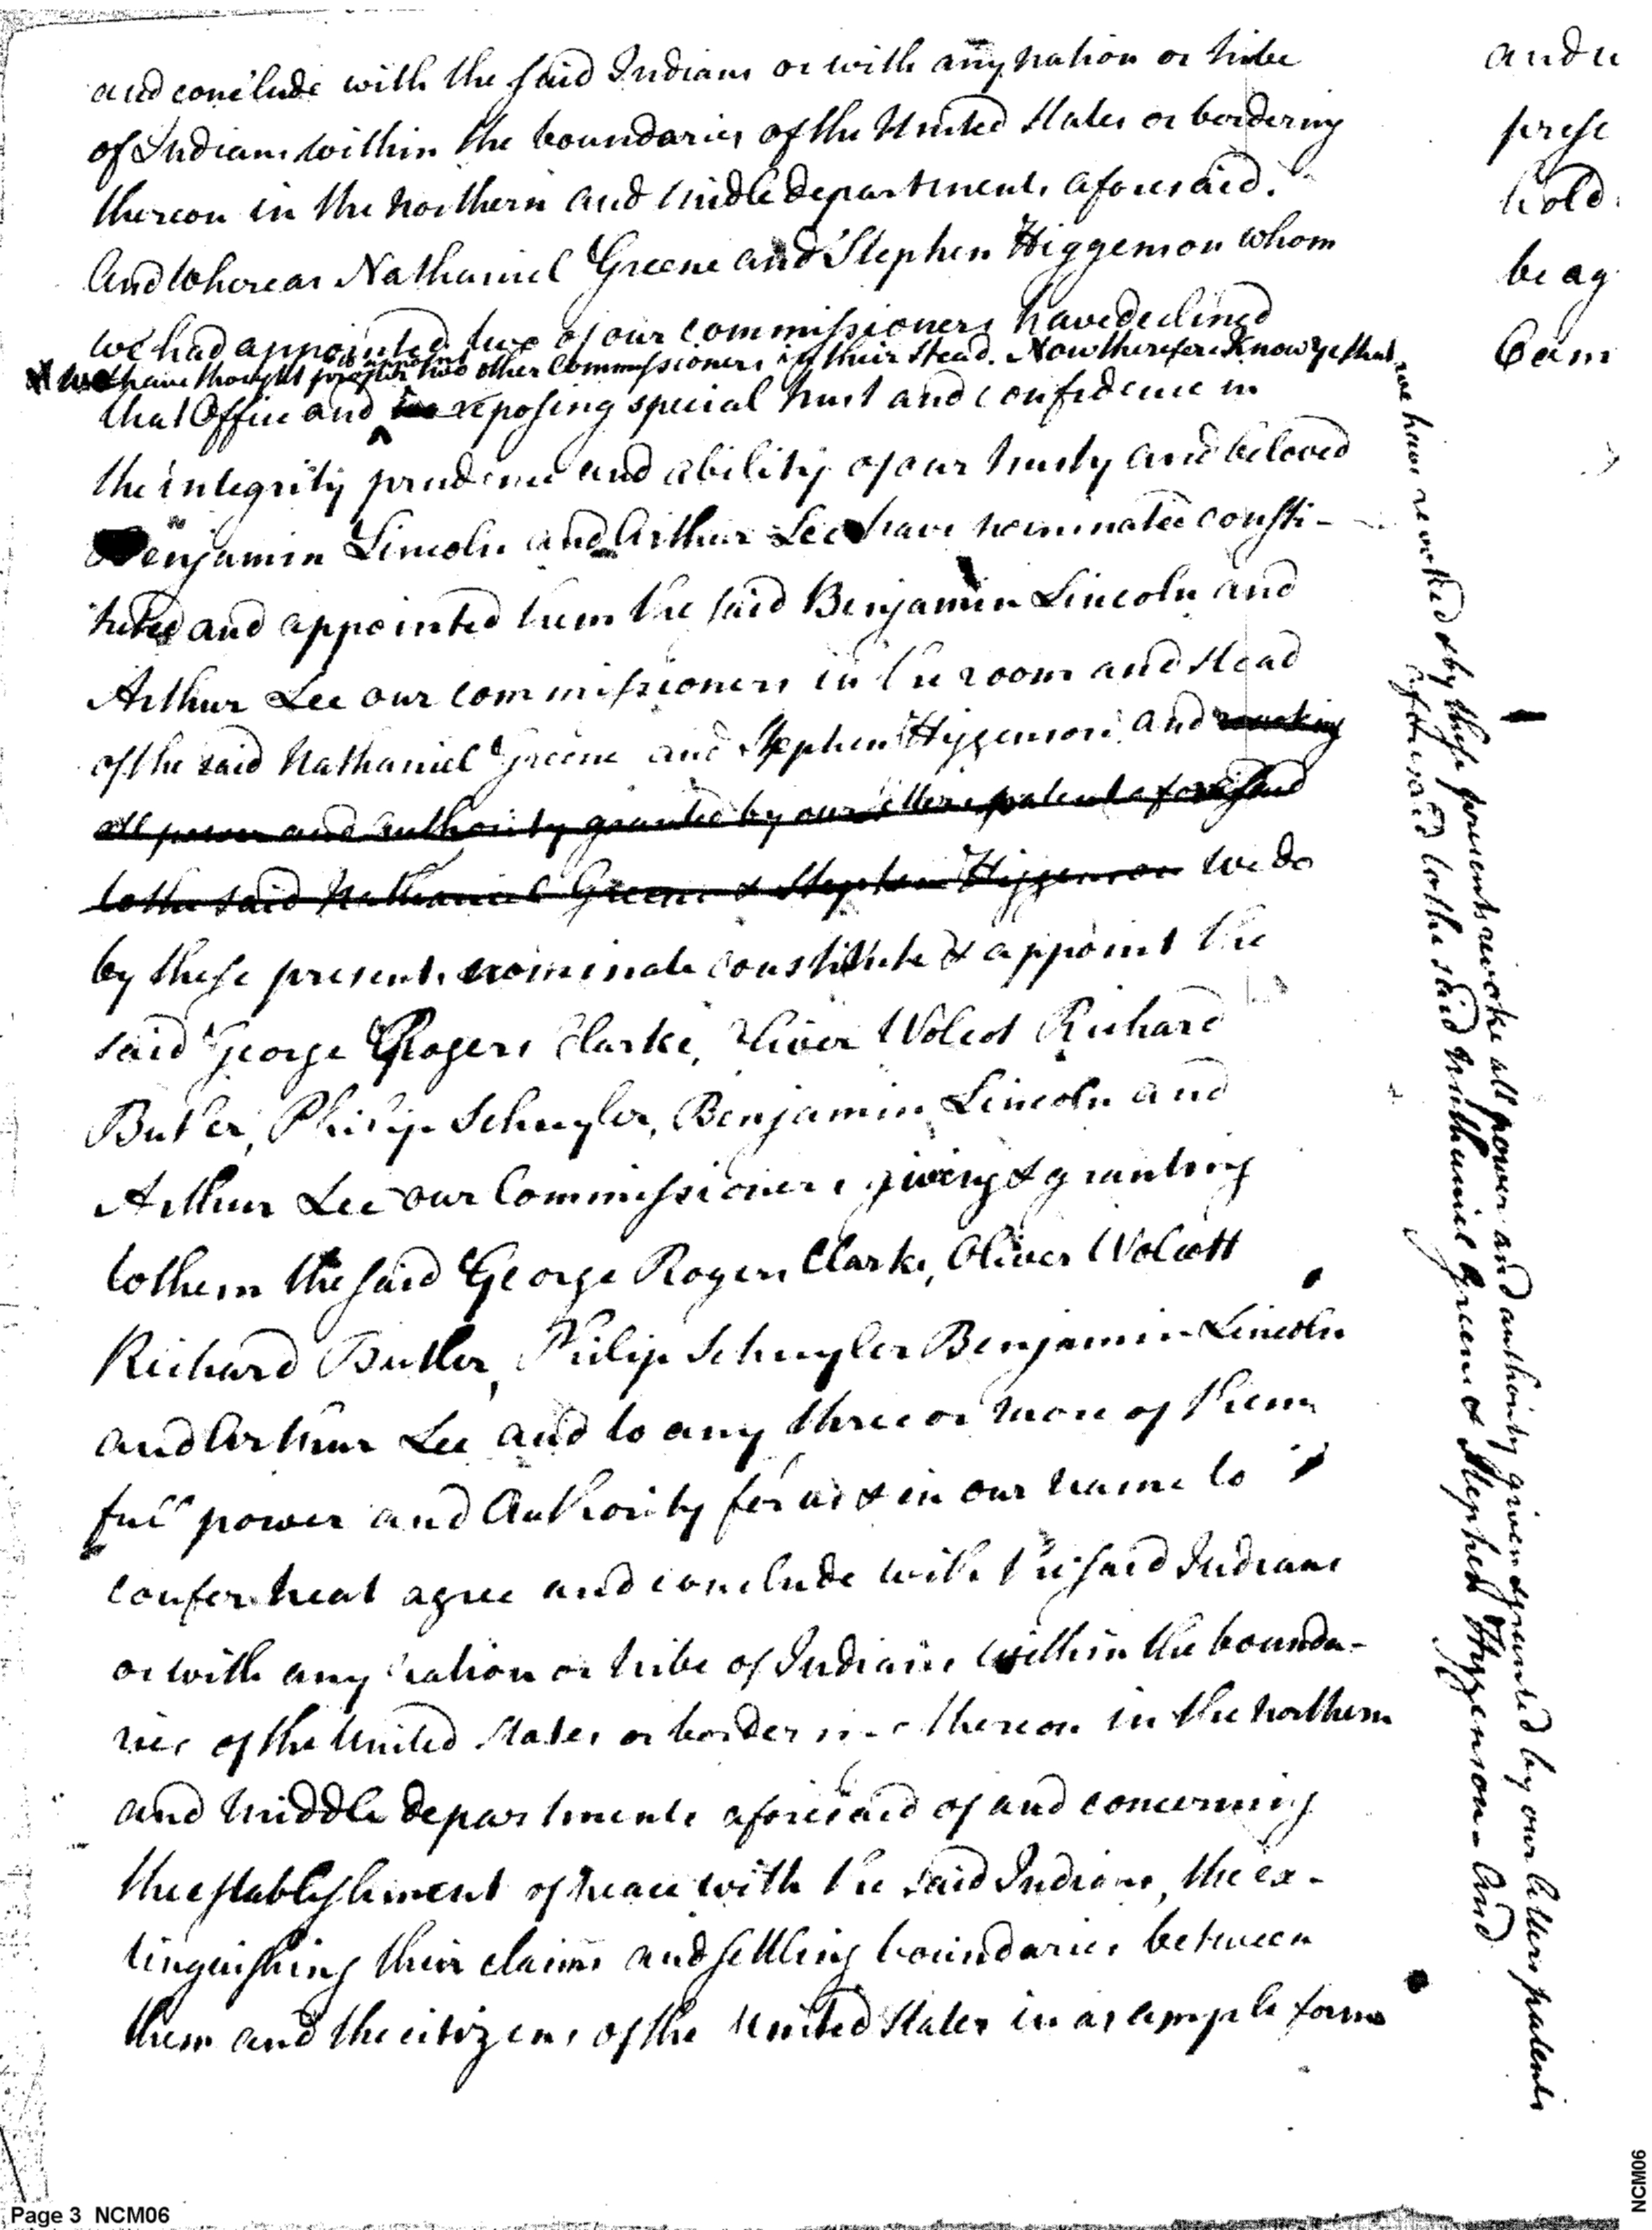 and conclude with the said Indians or with any nation or tribe
of Indians within the boundaries of the United States or bordering
thereon in the northern and midle departments aforesaid.
And Whereas Nathaniel Greene and Stephen Higgenson whom
we had appointed two of our commissioners have declined
& we have thought proper to appoint two other Commissioners in their stead. Now therefore Know Ye that
that Office and reposing special trust and confidence in
the integrity prudence and ability of our trusty and beloved
Benjamin Lincoln and Arthur Lee have nominated consti-
tuted and appointed them the said Benjamin Lincoln and
Arthur Lee our commissioners in the room and stead
of the said Nathaniel Greene and Stephen Higgenson and revoking
all power and authority granted by our letters patent aforesaid
to the said Nathaniel Greene & Stephen Higgenson we do
by these presents nominate constitute & appoint the
said George Rogers Clarke, Oliver Wolcot Richard
Butler, Philip Schuyler, Benjamin Lincoln and
Arthur Lee our Commissioners giving & granting
to them the said George Rogers Clarke, Oliver Wolcott
Richard Butler, Philip Schuyler Benjamin Lincoln
and Arthur Lee and to any three or more of them
full power and Authority for us & in our name to
confer treat agree and conclude with the said Indians
or with any nation or tribe of Indians within the bounda-
ries of the United States or bordering thereon in the northern
and middle departments aforesaid of and concerning
the establishment of peace with the said Indians, the ex-
tinguishing their claims and settling boundaries between
them and the citizens of the United States in as ample form
we have revoked & by these presents revoke all power and authority given & granted by our letters patents
aforesaid to the said Nathaniel Greene & Stephen Higgenson - And
and u
prese
hold
be ag
Com
Page 3 NCM06
NCM06